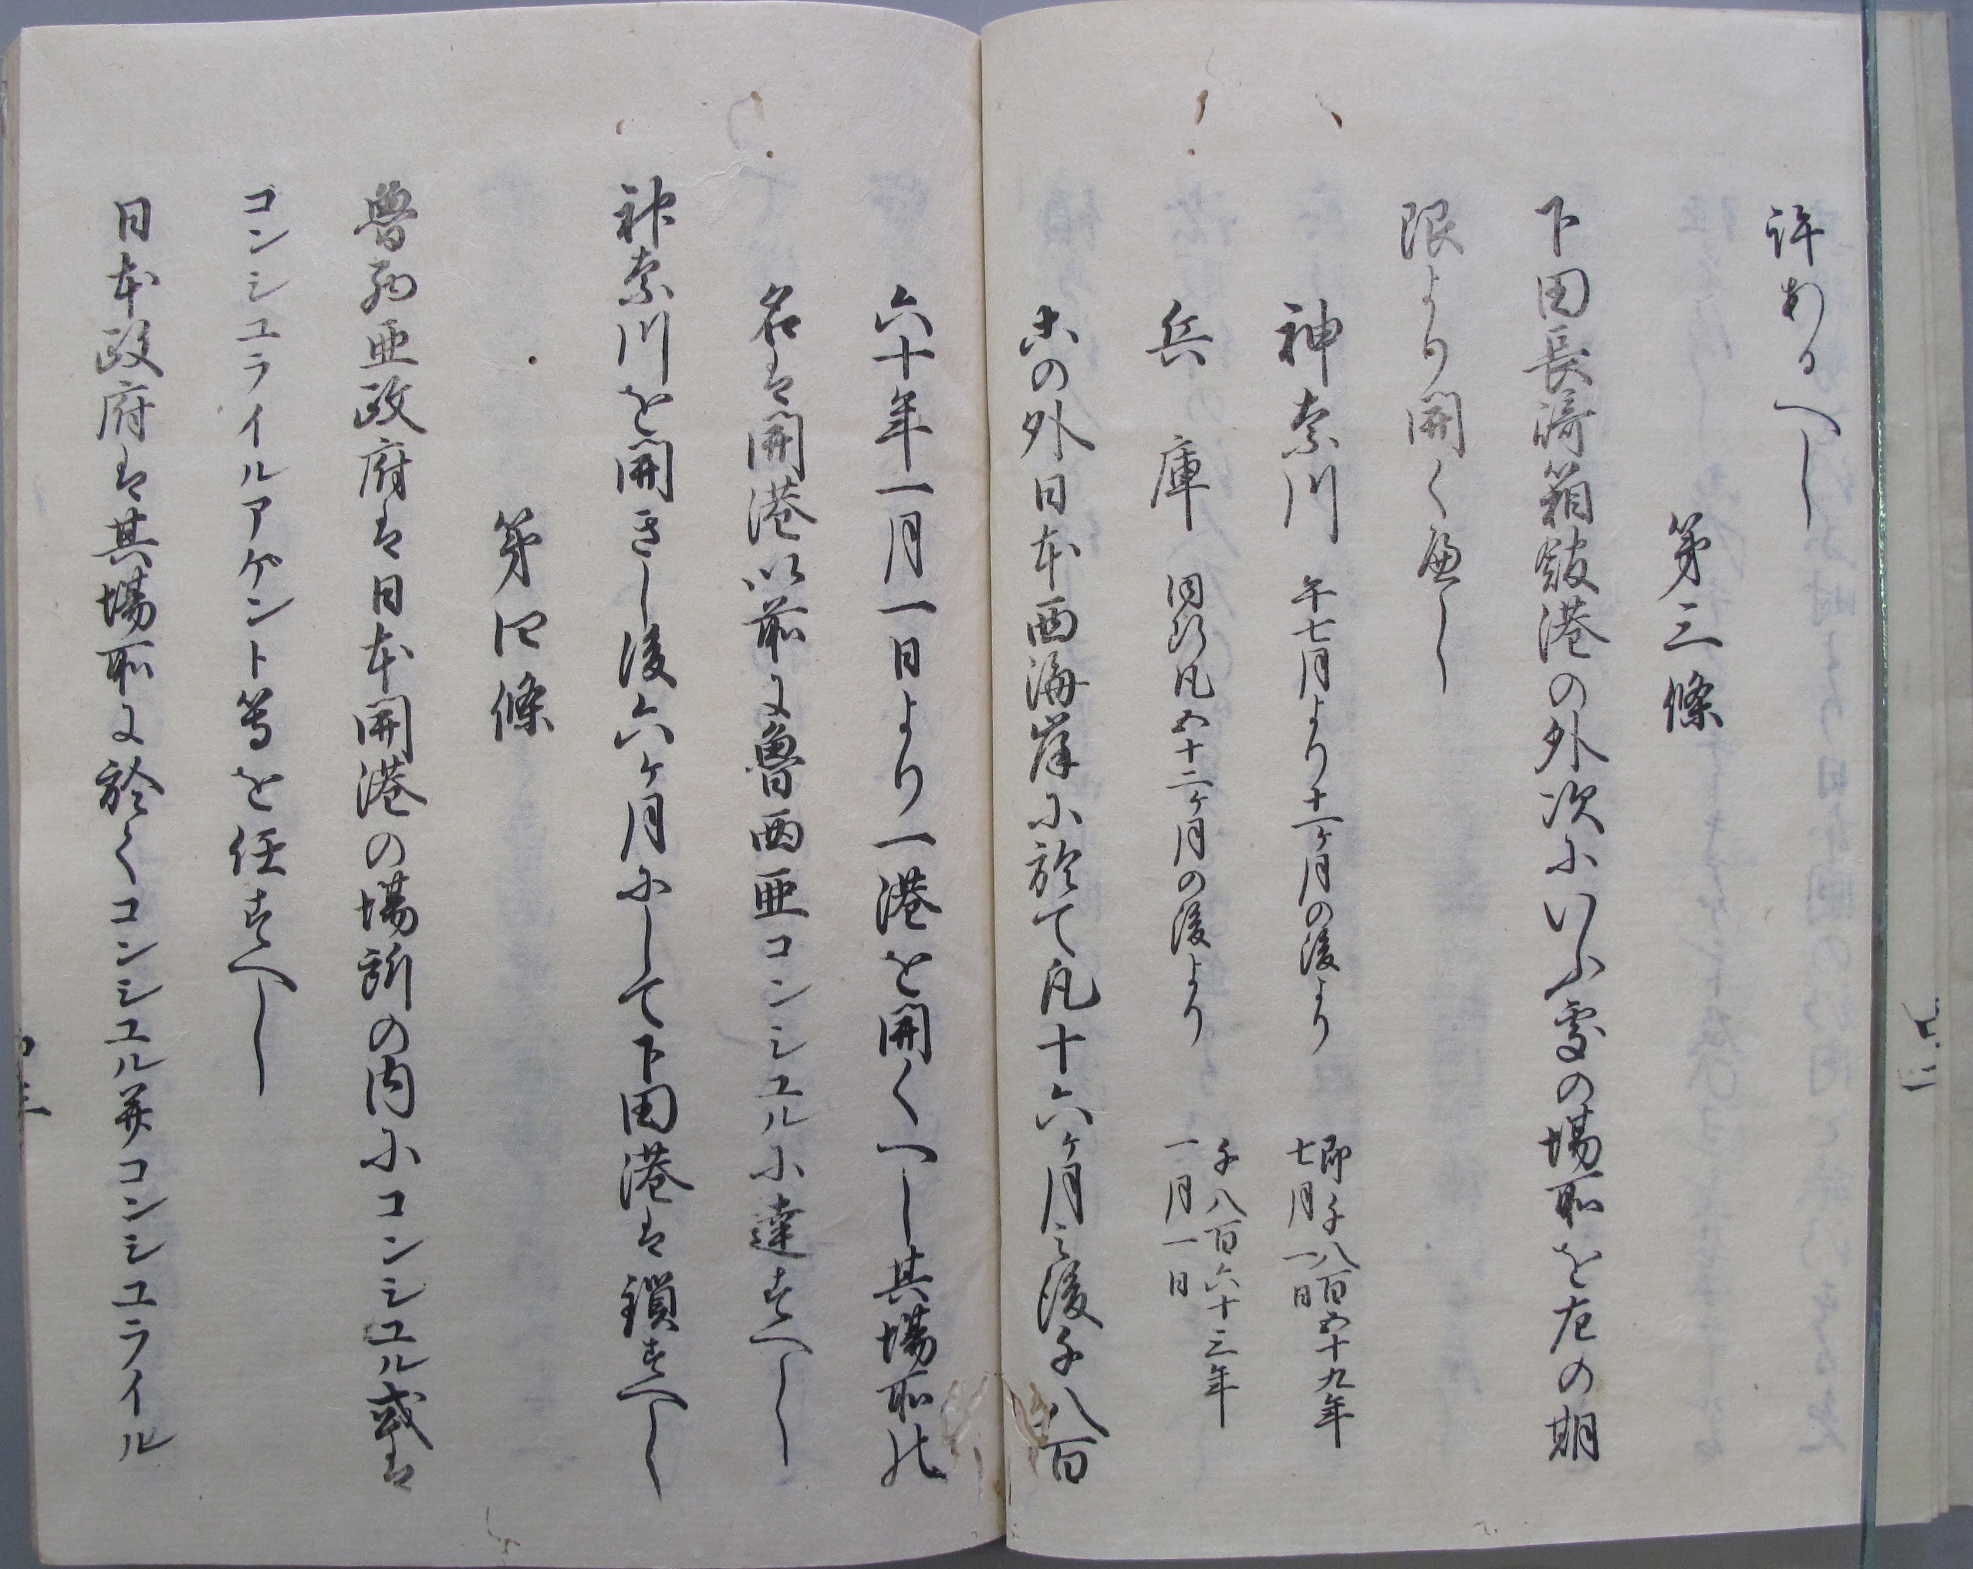 許あるへし
第三條
下田長崎箱舘港の外次にいふ處の場所を左の期
限より開くへし
神奈川 午七月より十二ヶ月の後より 即千八百五十九年
七月一日
兵庫 同断凡五十二ヶ月の後より 千八百六十三年
一月一日
右の外日本西海岸に於て凡十六ヶ月之後千八百
六十年一月一日より一港を開くへし其場所の
名は開港以前に魯西亜コンシユル小達すへし
神奈川を開きし後六ヶ月にして下田港は鎖すへし
第四條
魯西亜政府は日本開港の場所の内にコンシユル或は
コンシユライルアゲント等を任すへし
日本政府は其場所に於てコンシユル并コンシユライル